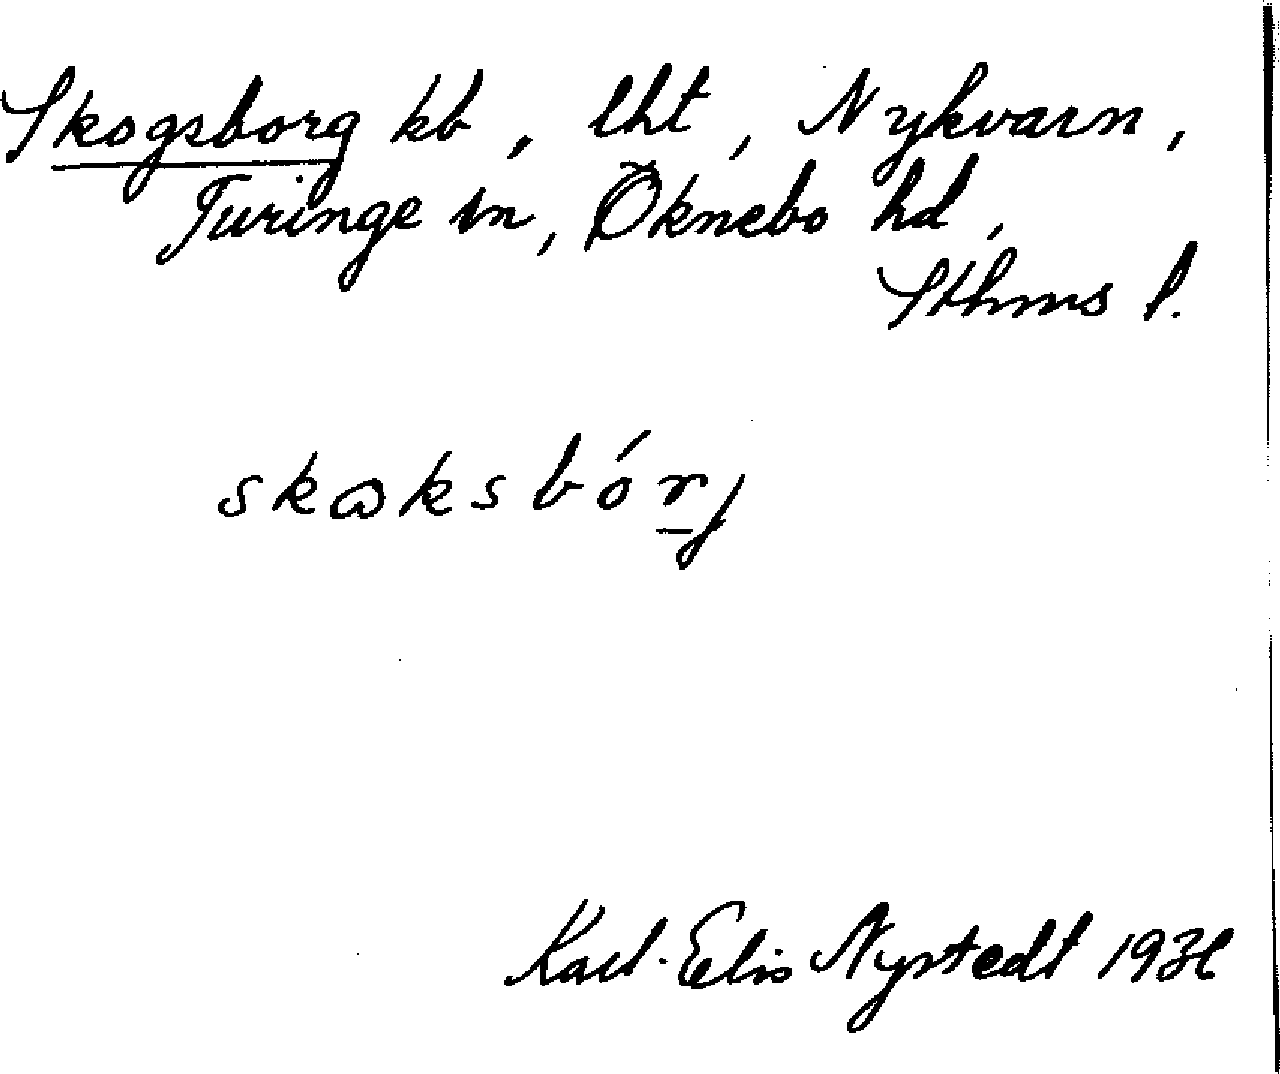 Skogsborg kb, lht, Nykvarn,
Turinge sn, Öknebo hd,
Sthms l.
skɷksbórj
Karl-Elis Nystedt 1936